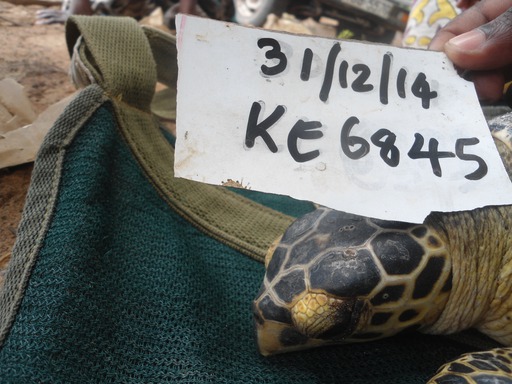 31/12/14
KE6845